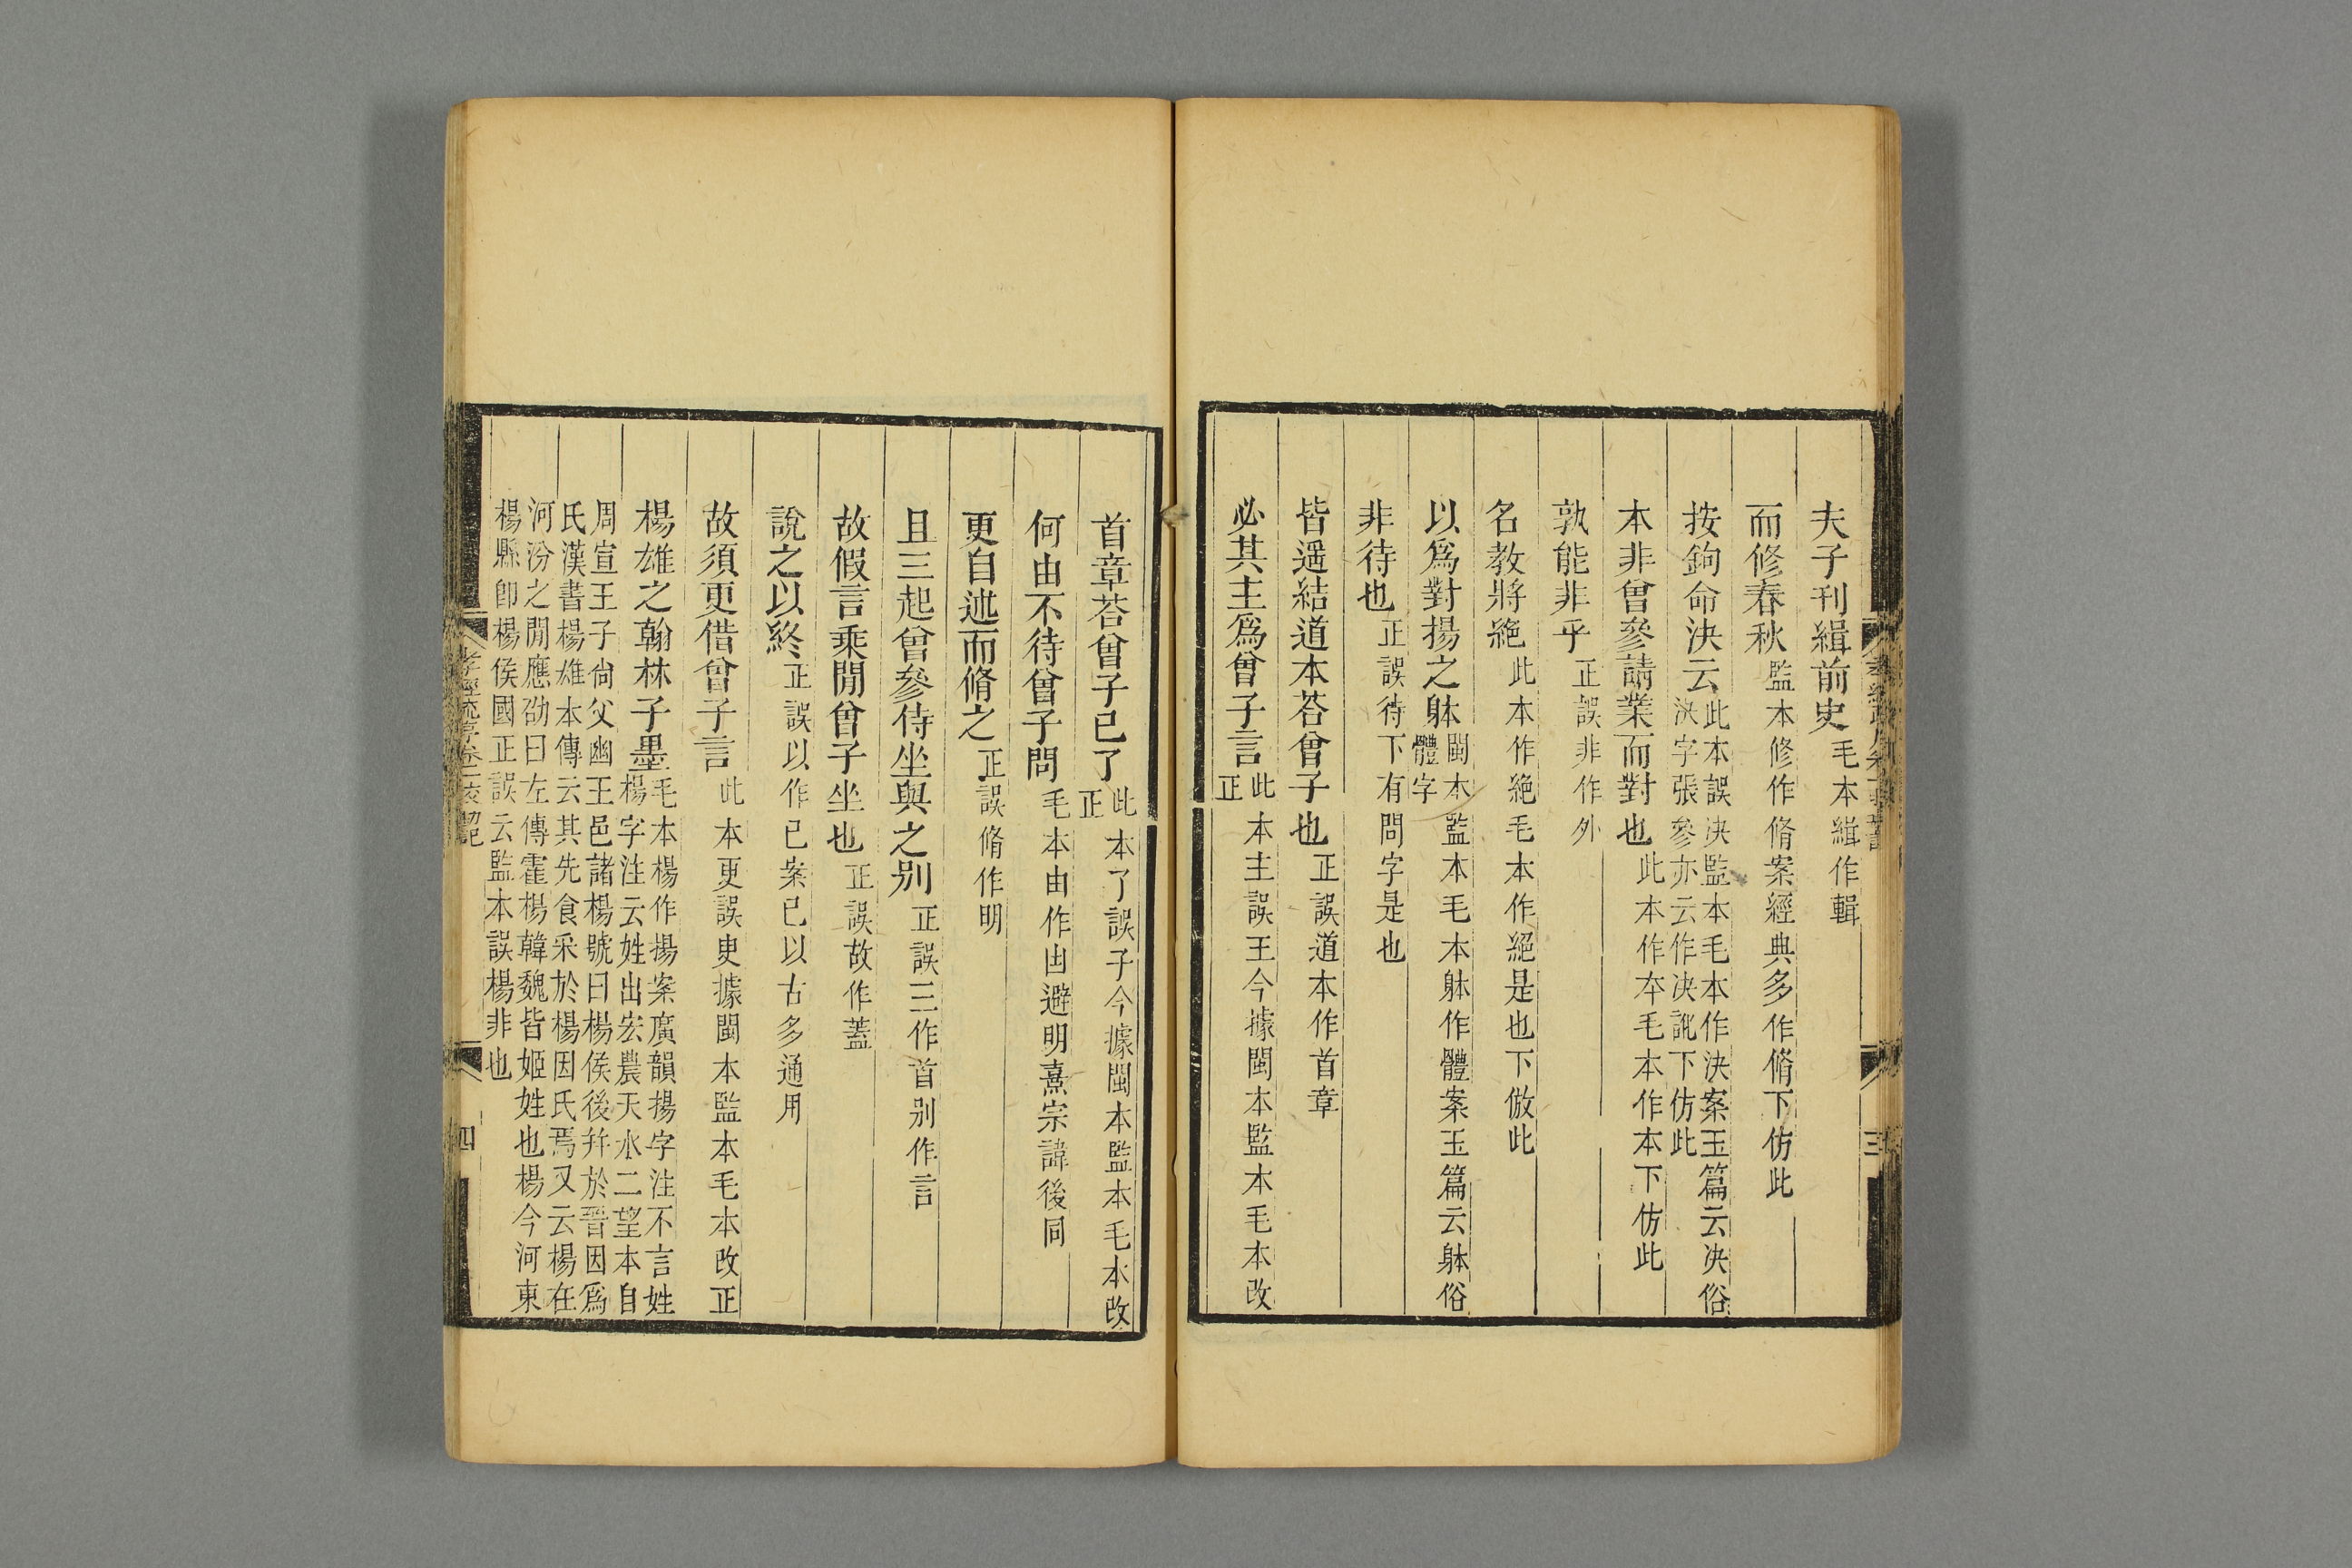 夫子刊緝前史毛本緝作輯
而修春秋監本修作脩案經典多作脩下仿此
按鉤命決云此本誤决監本毛本作決案玉篇云决俗決字張參亦云作决訛下仿此
本非曾參請業而對也此本作夲毛本作本下仿此
敦能非乎正誤非作外
名教將絶此本作絶毛本作絕是也下倣此
以爲對揚之躰閩本監本毛本躰作體案玉篇云躰俗體字
非待也正誤待下有問字是也
皆遥結道本荅曾子也正誤道本作首章
必其主爲曾子言此本主誤王今據閩本監本毛本改正
三
首章荅曾子已了此本了誤子今據閩本監本毛本改正
何由不待曾子問毛本由作甶避明熹宗諱後同
更自述而脩之正誤脩作明
且三起曾參侍坐與之别正誤三作首别作言
故假言乘閒曾子坐也正誤故作蓋
說之以終正誤以作已案已以古多通用
故須更借曾子言此本更誤史據閩本監本毛本改正
楊雄之翰林子墨毛本楊作揚案廣韻揚字注不言姓楊字注云姓出宏農天水二望本自
周宣王子尙父幽王邑諸楊號曰楊侯後幷於晉因爲氏漢書楊雄本傳云其先食采於楊因氏焉又云楊在
河汾之閒應劭曰左傳霍楊韓魏皆姬姓也楊今河東楊縣卽楊侯國正誤云監本誤楊非也
孝經疏序卷一校勘記
四